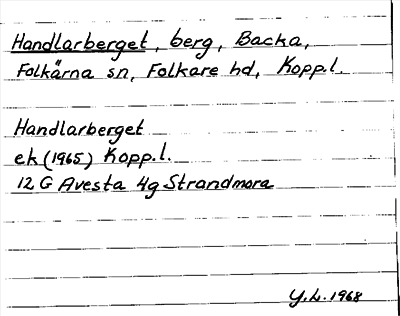 Handlarberget, berg, Backa,
Folkärna sn, Folkare hd, Kopp.l.
Handlarberget
ek (1965) Kopp.l.
12 G Avesta 4g Strandmora
Y.L. 1968